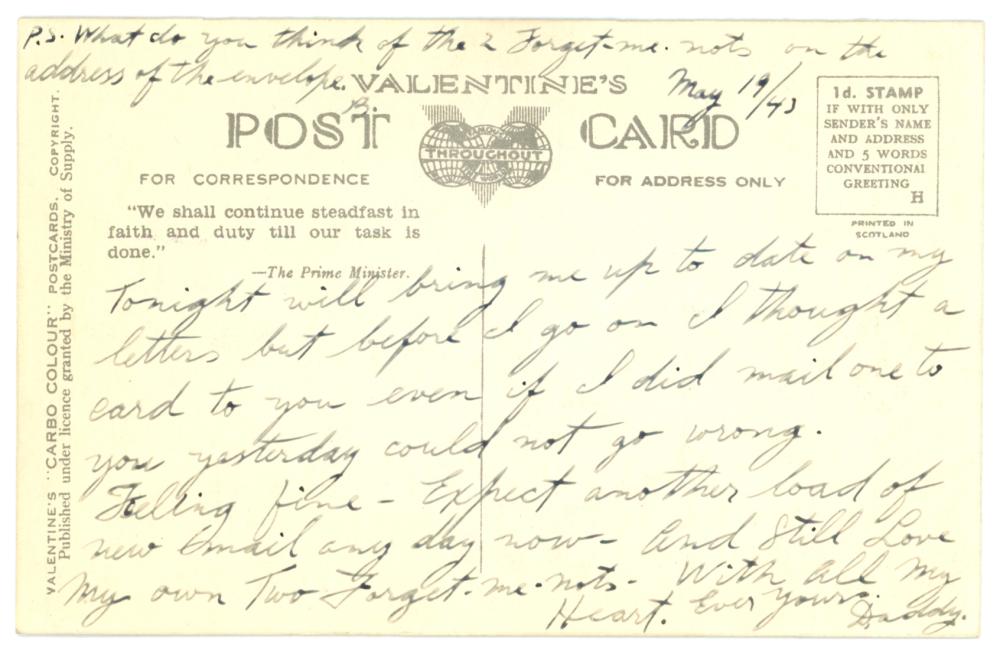 P.S. What do you think of the 2 Forget-me-nots on the
address of the envelope.
May 19/43
VALENTINE'S
POST CARD
THROUGHOUT
FOR CORRESPONDENCE
FOR ADDRESS ONLY
1d. STAMP
IF WITH ONLY
SENDER'S NAME
AND ADDRESS
AND 5 WORDS
CONVENTIONAL
GREETING
H
PRINTED IN
SCOTLAND
"We shall continue steadfast in
faith and duty till our task is
done."
—The Prime Minister.
VALENTINE'S "CARBO COLOUR" POSTCARDS. COPYRIGHT.
Published under licence granted by the Ministry of Supply.
Tonight will bring me up to date on my
letters but before I go on I thought a
card to you even if I did mail one to
you yesterday could not go wrong.
Feeling fine - Expect another load of
new mail any day now - And Still Love
My own Two Forget-me-nots - With all My
Heart. Ever Yours. Daddy.